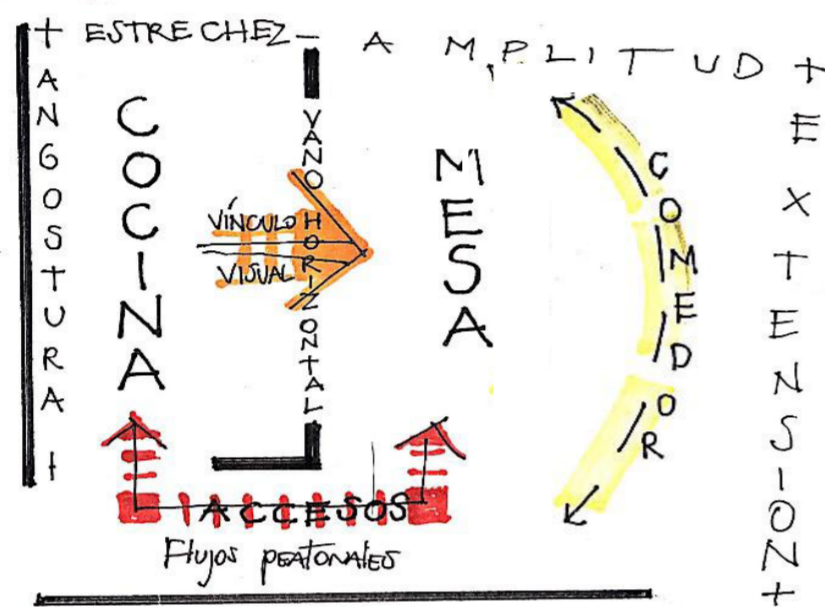 + ESTRECHEZ - AMPLITUD +
+ ANGOSTURA +
COCINA
VANO HORIZONTAL
VÍNCULO
VISUAL
MESA
COMEDOR
EXTENSION +
ACCESOS
Flujos peatonales